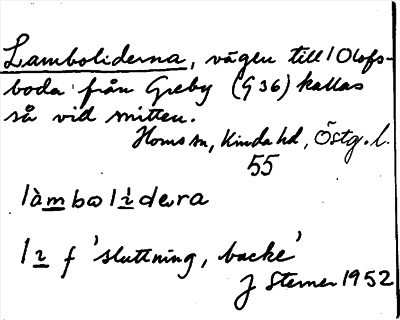 Lamboliderna, vägen till Olofs-
boda från Greby (G 36) kallas
så vid mitten.
Horns sn, Kinda hd, Östg. l.
55
làmbolìdera
lı f 'sluttning, backe'
J Sterner 1952